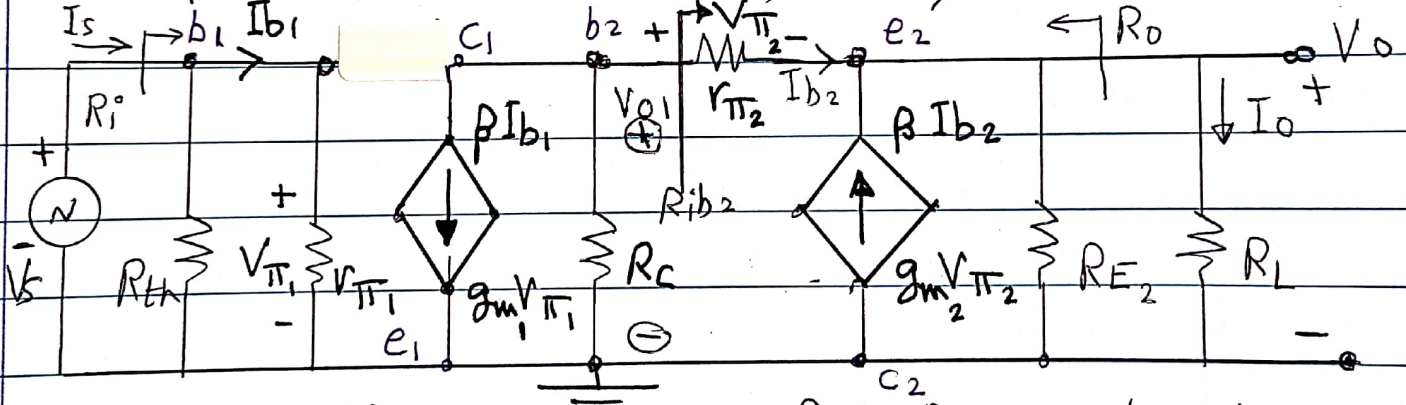 Is b1 Ib1 C1 b2 + Vπ2 - e2 Ro Vo
Ri Vo1 rπ2 Ib2 + Io
+ βIb1 + βIb2
N + Rib2
- Vs Rth Vπ1 rπ1 gm1Vπ1 Rc gm2Vπ2 RE2 RL
- e1 - -
c2